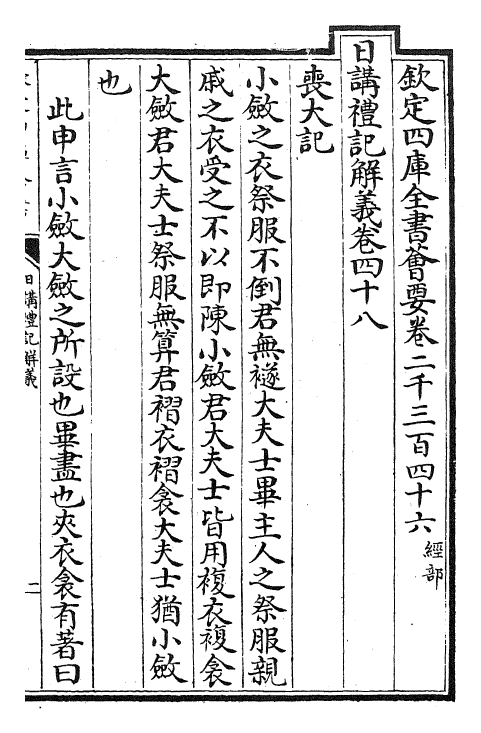 欽定四庫全書薈要卷二千三百四十六 經部
日講禮記解義卷四十八
喪大記
小斂之衣祭服不倒君無襚大夫士畢主人之祭服親
戚之衣受之不以即陳小斂君大夫士皆用複衣複衾
大斂君大夫士祭服無算君褶衣褶衾大夫士猶小斂
也
此申言小斂大斂之所設也畢盡也夾衣衾有著曰
日講禮記解義